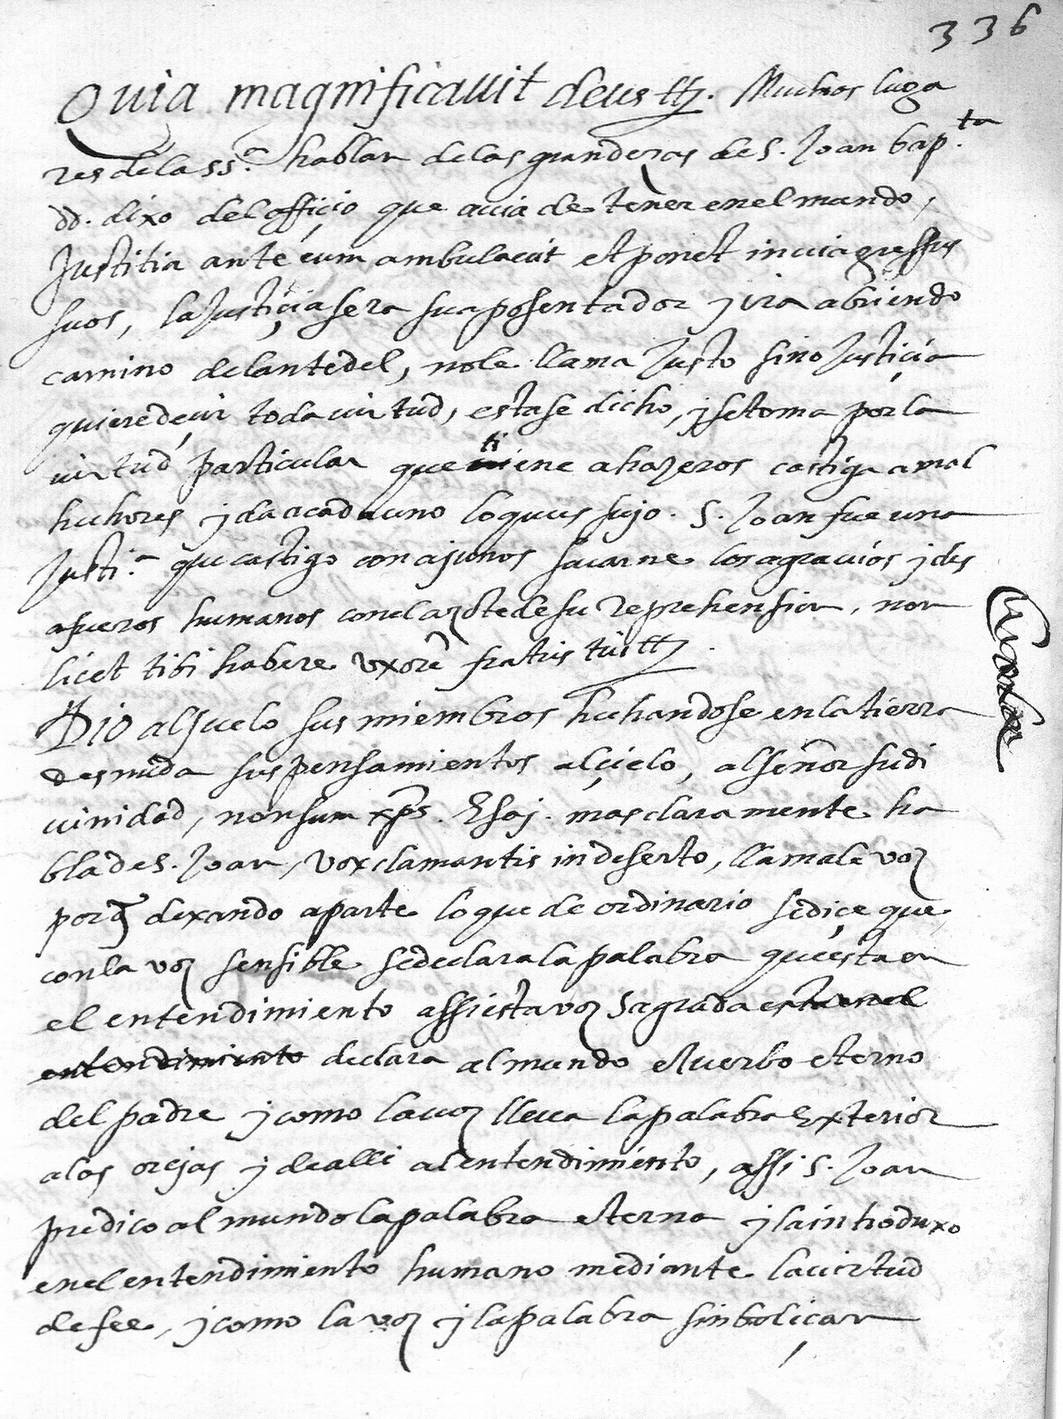 336
Quia magnificauit deus etc. Muchos luga
res dela ss.ª hablan de las grandeças de S. Joan bap.ta
dd. dixo del offiçio que auia de tener en el mundo,
Justitia ante eum ambulauit et ponet in uia gressus
suos, la Justiçia sera su aposentador y ira abriendo
camino delante del, no le llama Justo sino Justiçia
quiere deçir toda uirtud, esta se dicho, y se toma por la
uirtud particular que tiene a hazeros castigar a mal
hechores y da a cada uno lo que es suyo. S. Joan fue una
Justi.ª que castigo con ajunos su carne los agrauios y des
afueros humanos con el azote de su reprehension, non
licet tibi habere uxorē fratris tui etc.
Dio al suelo sus miembros hechandose en la tierra
desnuda sus pensamientos al çielo, al señor su di
uinidad, non sum xp̄s. Esaj. mas claramente ha
bla de S. Joan, Vox clamantis in deserto, llamale voz
porq̃ dexando aparte lo que de ordinario se diçe que
con la voz sensible se declara la palabra que esta en
el entendimiento assi esta voz sagrada esta en el
entendimiento declara al mundo el uerbo eterno
del padre y como la uoz lleua la palabra exterior
a los orejas y de alli al entendimiento, assi S. Joan
predico al mundo la palabra eterna y la introduxo
en el entendimiento humano mediante la uirtud
de fee, y como la voz y la palabra sinboliçan